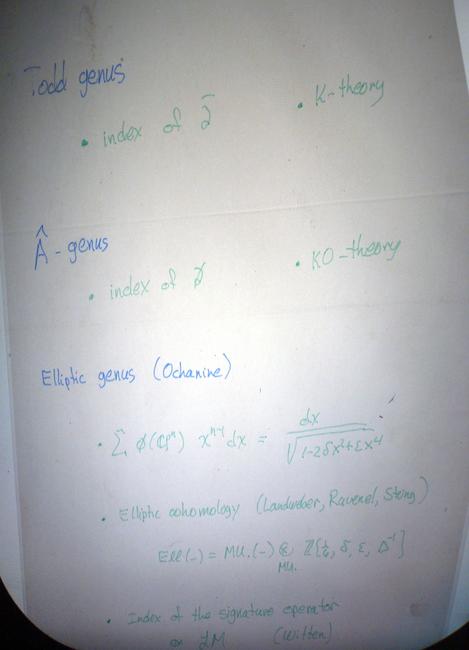 Todd genus
• index of ∂̄
• K-theory
Â-genus
• index of ∂̸
• KO-theory
Elliptic genus (Ochanine)
• Σ φ(ℂPⁿ) xⁿ⁻¹dx = dx / √(1-2δx²+εx⁴)
• Elliptic cohomology (Landweber, Ravenel, Stong)
Ell(-) = MU.(-) ⊗ ℤ[½, δ, ε, Δ⁻¹]
MU.
• Index of the signature operator
on ℒM (Witten)